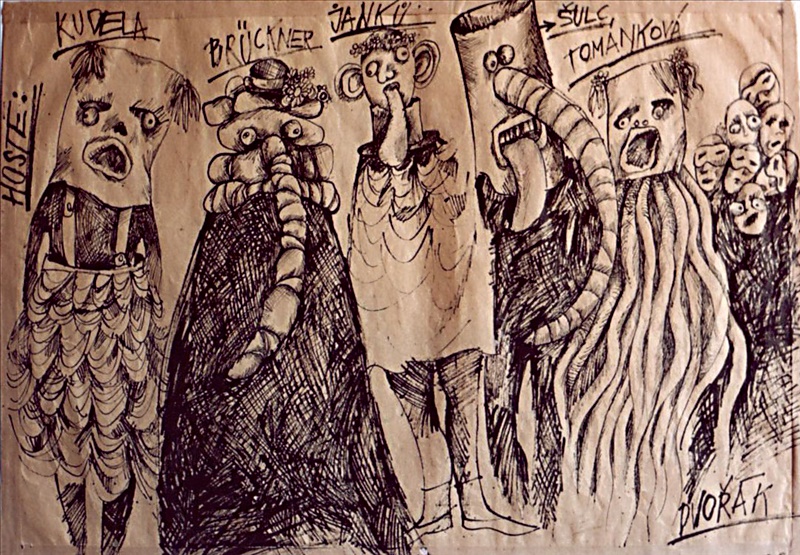 HOSTÉ:
KUDELA
BRÜCKNER
JANKŮ
ŠULC,
TOMÁNKOVÁ
DVOŘÁK